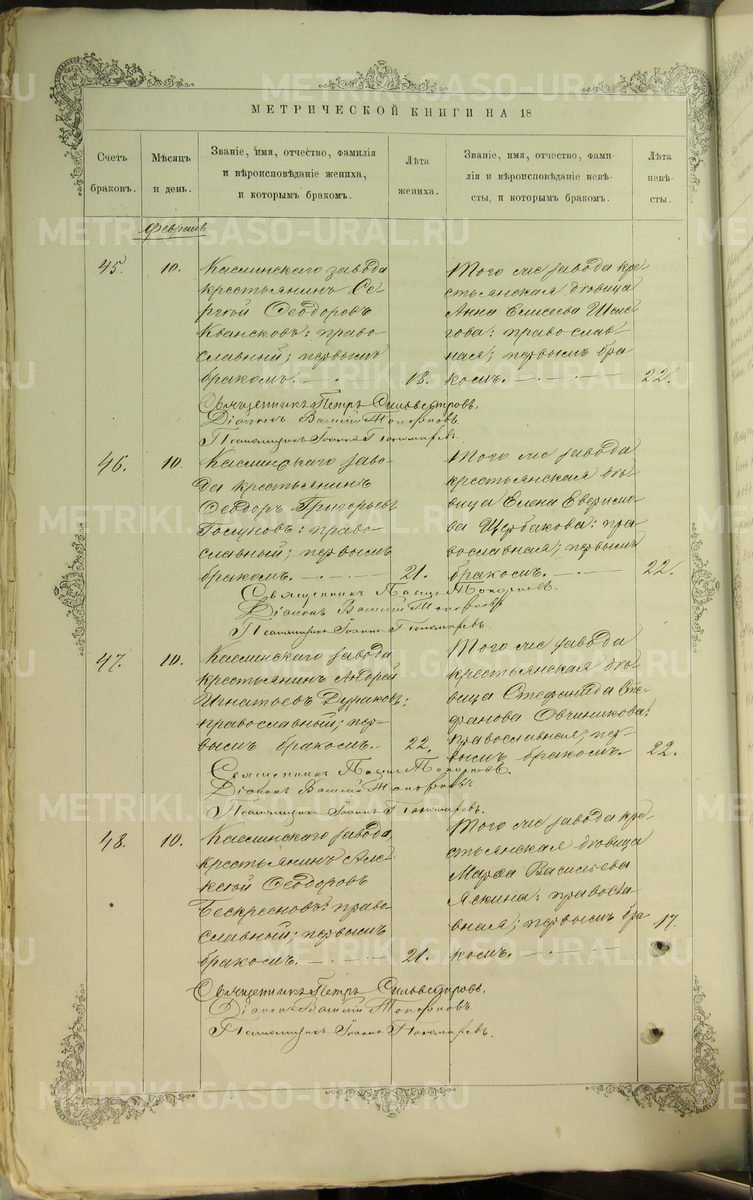 METRIKI.GASO-URAL.RU
МЕТРИЧЕСКОЙ КНИГИ НА 18
Счетъ браковъ.
Мѣсяцъ и день.
Званіе, имя, отчество, фамилія
и вѣроисповѣданіе жениха,
и которымъ бракомъ.
Лѣта жениха.
Званіе, имя, отчество, фами-
лія и вѣроисповѣданіе невѣ-
сты, и которымъ бракомъ.
Лѣта невѣ-
сты.
Февраль
45.
10.
Каслинскаго завода
крестьянинъ Се
ргѣй Ѳеодоровъ
право
славный; первымъ
бракомъ.
18.
Того же завода кре
стьянская дѣвица
Анна Елисеева
православ
ная; первымъ бра
комъ.
22.
Священникъ Петръ Сильвестровъ.
Діаконъ Василій Топорковъ.
Псаломщикъ Іоаннъ Пономаревъ.
46.
10.
Каслинскаго заво
да крестьянинъ
Ѳеодоръ Григорьевъ
Голуновъ: право
славный; первымъ
бракомъ.
21.
Того же завода
крестьянская дѣ
вица Елена Евфимо
ва Щербакова: пра
вославная; первымъ
бракомъ.
22.
Священникъ Топорковъ.
Діаконъ Василій Топорковъ
Псаломщикъ Іоаннъ Пономаревъ.
47.
10.
Каслинскаго завода
крестьянинъ Андрей
Игнатьевъ Дураковъ;
православный; пер
вымъ бракомъ.
22.
Того же завода
крестьянская дѣ
вица Стефанида Сте
фанова Овчинникова:
православная; пер
вымъ бракомъ.
22.
Священникъ Топорковъ.
Діаконъ Василій Топорковъ
Псаломщикъ Іоаннъ Пономаревъ.
48.
10.
Каслинскаго завода
крестьянинъ Але
ксѣй Ѳеодоровъ
право
славный; первымъ
бракомъ.
21.
Того же завода кре
стьянская дѣвица
Марѳа Васильева
Яскина: правосла
вная; первымъ бра
комъ.
17.
Священникъ Петръ Сильвестровъ.
Діаконъ Василій Топорковъ.
Псаломщикъ Іоаннъ Пономаревъ.